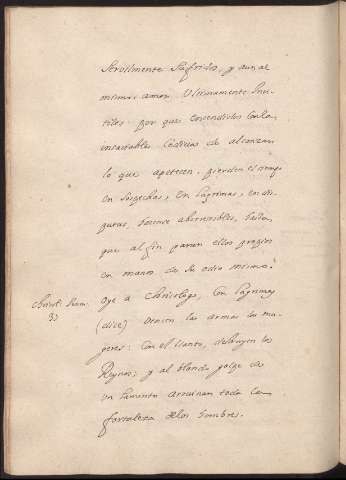 servilmente sufridos, y aun al
mismo amor. Ultimamente Inu-
tiles: por que encendidos con la
insaciables codicias de alcanzar
lo que apetecen, pierden el tiempo
en sospechas, en lagrimas, en dis-
gustos, hacense aborrecibles, hasta
que al fin paran ellos propios
en manos de su odio mismo.
Chrisost. Hom.
37
Oye a Chrisologo, con lagrimas
(dice) vencen las armas las mu-
geres: con el llanto, destruyen los
Reynos; y al blando golpe de
un lamento arruinan toda la
fortaleza de los hombres.